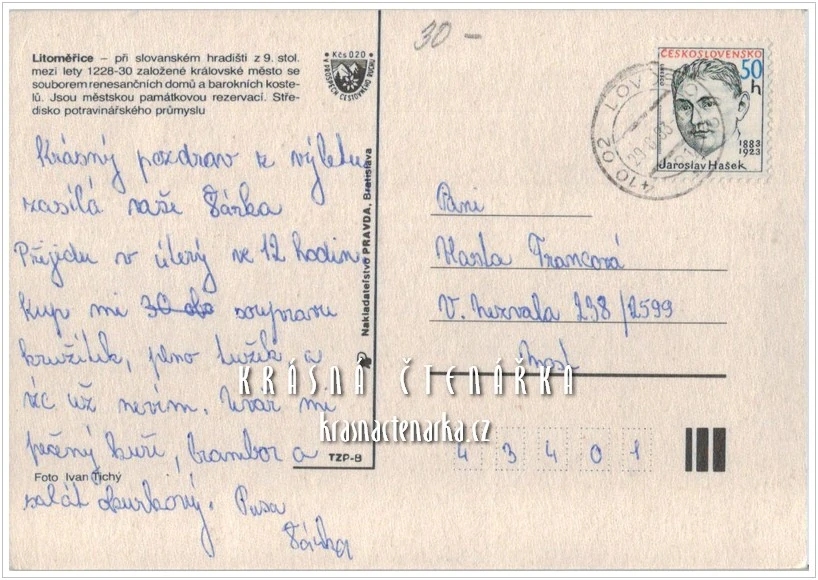 30 –
Litoměřice – při slovanském hradišti z 9. stol.
mezi lety 1228-30 založené královské město se
souborem renesančních domů a barokních koste-
lů. Jsou městskou památkovou rezervací. Stře-
disko potravinářského průmyslu
Kčs 0,20
V PROSPĚCH CESTOVNÍHO RUCHU
Krásný pozdrav z výletu
zasílá vaše Šárka
Přijedu v úterý ve 12 hodin.
Kup mi 30 soupravu
kružítek, plno tužek a
víc už nevím. Uvař mi
pečený kuře, brambor a
salát okurkový. Pusa
Šárka
Foto Ivan Tichý
Nakladatelství PRAVDA, Bratislava
TZP-8
ČESKOSLOVENSKO
50
h
1883
1923
Jaroslav Hašek
410 02 LOV
Paní
Vlasta Francová
V. Nezvala 238/2599
Most
43401
KRÁSNÁ ČTENÁŘKA
krasnactenarka.cz